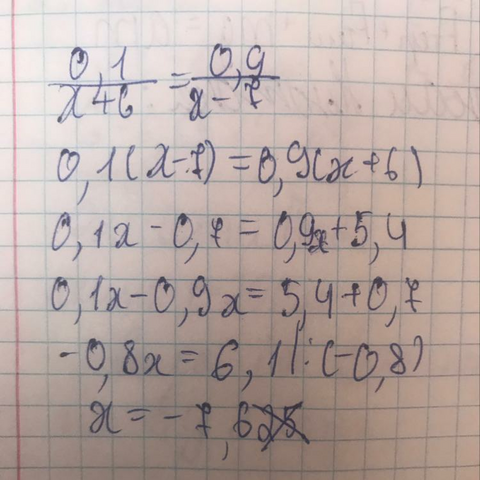 0,1/x+6 = 0,9/x-7
0,1(x-7)=0,9(x+6)
0,1x-0,7=0,9x+5,4
0,1x-0,9x=5,4+0,7
-0,8x=6,1|:(-0,8)
x=-7,625